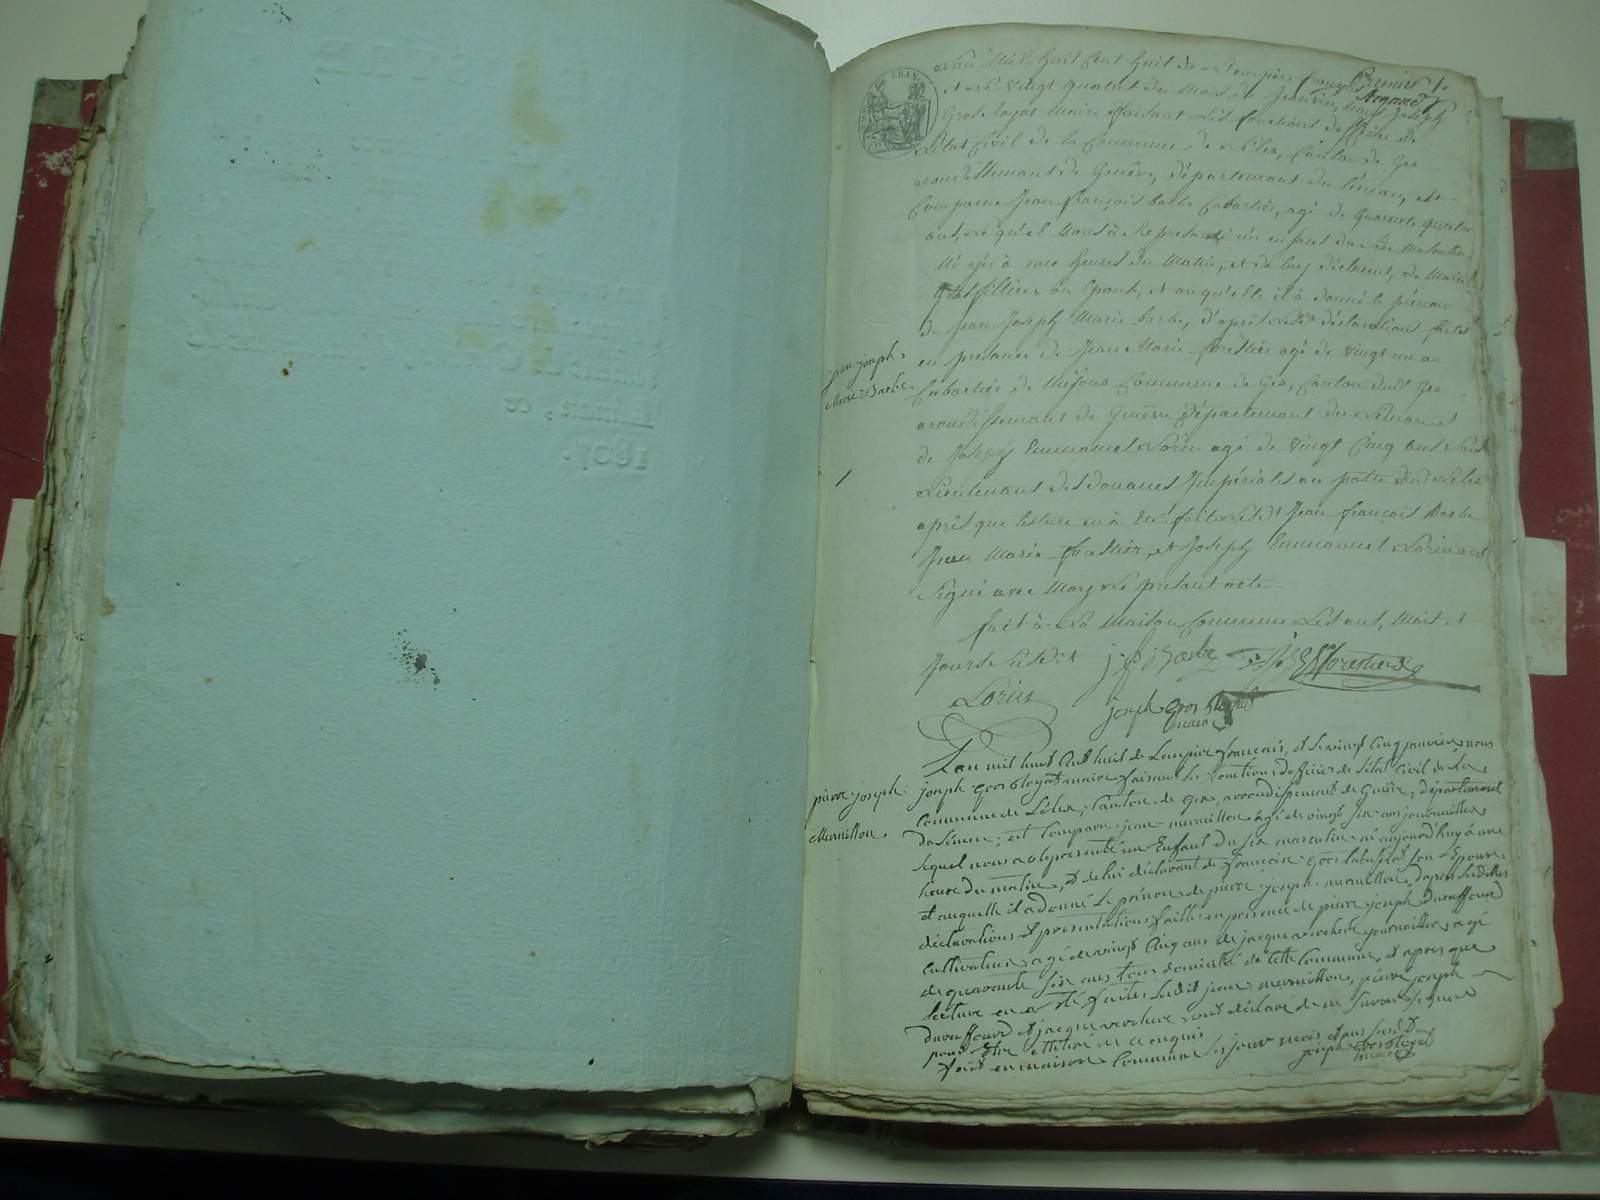 L'an Mil huit Cent huit de L'empire français
Premier
et Le Vingt quatre du Mois de Janvier, nous Joseph
Gros tayat Maire faisant Les fonctions d'officier de
L'état Civil de la Commune de Lélex, Canton de Gex
arondissement de Genève, département du Léman, est
Comparu Jean françois barbe Cabartier, agé de quarente quatre
ans, Le qu'el Nous à Representé un enfant du sexe Masculin
Né à heures du Matin, et de luy déclarent, de Marie
son Epouse, et au qu'elle il à donné le prénom
de Jean Joseph Marie barbe, d'après Lesdtes déclarations faites
en présence de Jean Marie forestier agé de Vingt un an
Cabartier de Mijoux Commune de Gex, Canton dudt Gex
arondissement de Genève Département du Léman et
de Joseph Emmanuel Lorin agé de Vingt Cinq ans
Lieutenant des douanes Impériales au poste dud Lélex
après que lecture en à Eté faite Ledt Jean françois Barbe
Jean Marie forestier, et Joseph Emmanuel Lorin ont
Signé avec Moy Le présent acte
fait à La Maison Commune Lesd ans, Mois, et
Jour Susdit
Barbe
forestier
Lorin
joseph gros tayat
maire
jean joseph
Marie Barbe
pierre joseph
Murmillon
L'an mil huit Cent huit de L'empire français, et Le vingt Cinq janvier nous
joseph gros tayat maire faisant les fonctions d'officier de l'état Civil de La
Commune de Lélex, Canton de gex, arrondissement de Genève, département
du Léman, est Comparu jean murmillon agé de vingt six ans journaillier
lequel nous a représenté un Enfant du sex masculin né aujourd'huy à une
heure du matin, et de lui déclarant et de françoise gros Son Epouse
et auquelle il a donné le prénom de pierre joseph murmillon, d'apres lesdittes
déclarations et présentations faittes en présence de pierre joseph duraffourd
Cultivateur agé de vingt Cinq ans de jacque journaillier agé
de quarante six ans tous domicilié de cette Commune, et apres que
lecture en a été faites Ledit jean murmillon, pierre joseph
duraffourd et jacque ont déclaré de ne savoir signer
pour Etre de Ce enquis
fait en maison Commune Les jour mois et an susdt
joseph gros tayat
maire
1807.